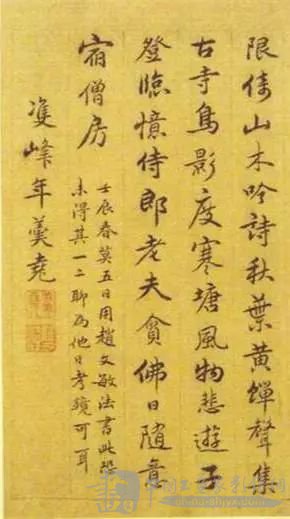 限倚山木吟詩秋葉黃蟬聲集
古寺鳥影度寒塘風物悲遊子
登臨憶侍郎老夫貪佛日隨意
宿僧房
壬辰春莫五日用趙文敏法書此
未得其一二聊為他日考鏡可耳
雙峰年羹堯